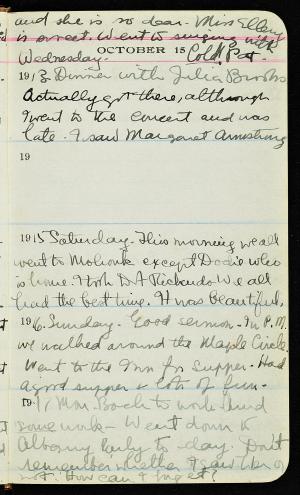 and she is so dear. Miss Ellery
is sweet. Went to surgeing with
Wednesday. OCTOBER 15 Cold. Pat.
1913 Dinner with Julia Brooks
Actually got there, although
I went to the concert and was
late. I saw Margaret Armstrong
19
1915 Saturday. This morning we all
went to Mohonk except Dodie who
is home. Took D.A. Richards. We all
had the best time. It was beautiful.
1916. Sunday. Good sermon. In P.M.
we walked around the Maple Circle.
Went to the Inn for supper. Had
a good supper & lots of fun.
1917 Mon. Back to work. Hard
some work - Went down to
Albany early to-day. Don't
remember whether I saw her or
not. How can I forget?